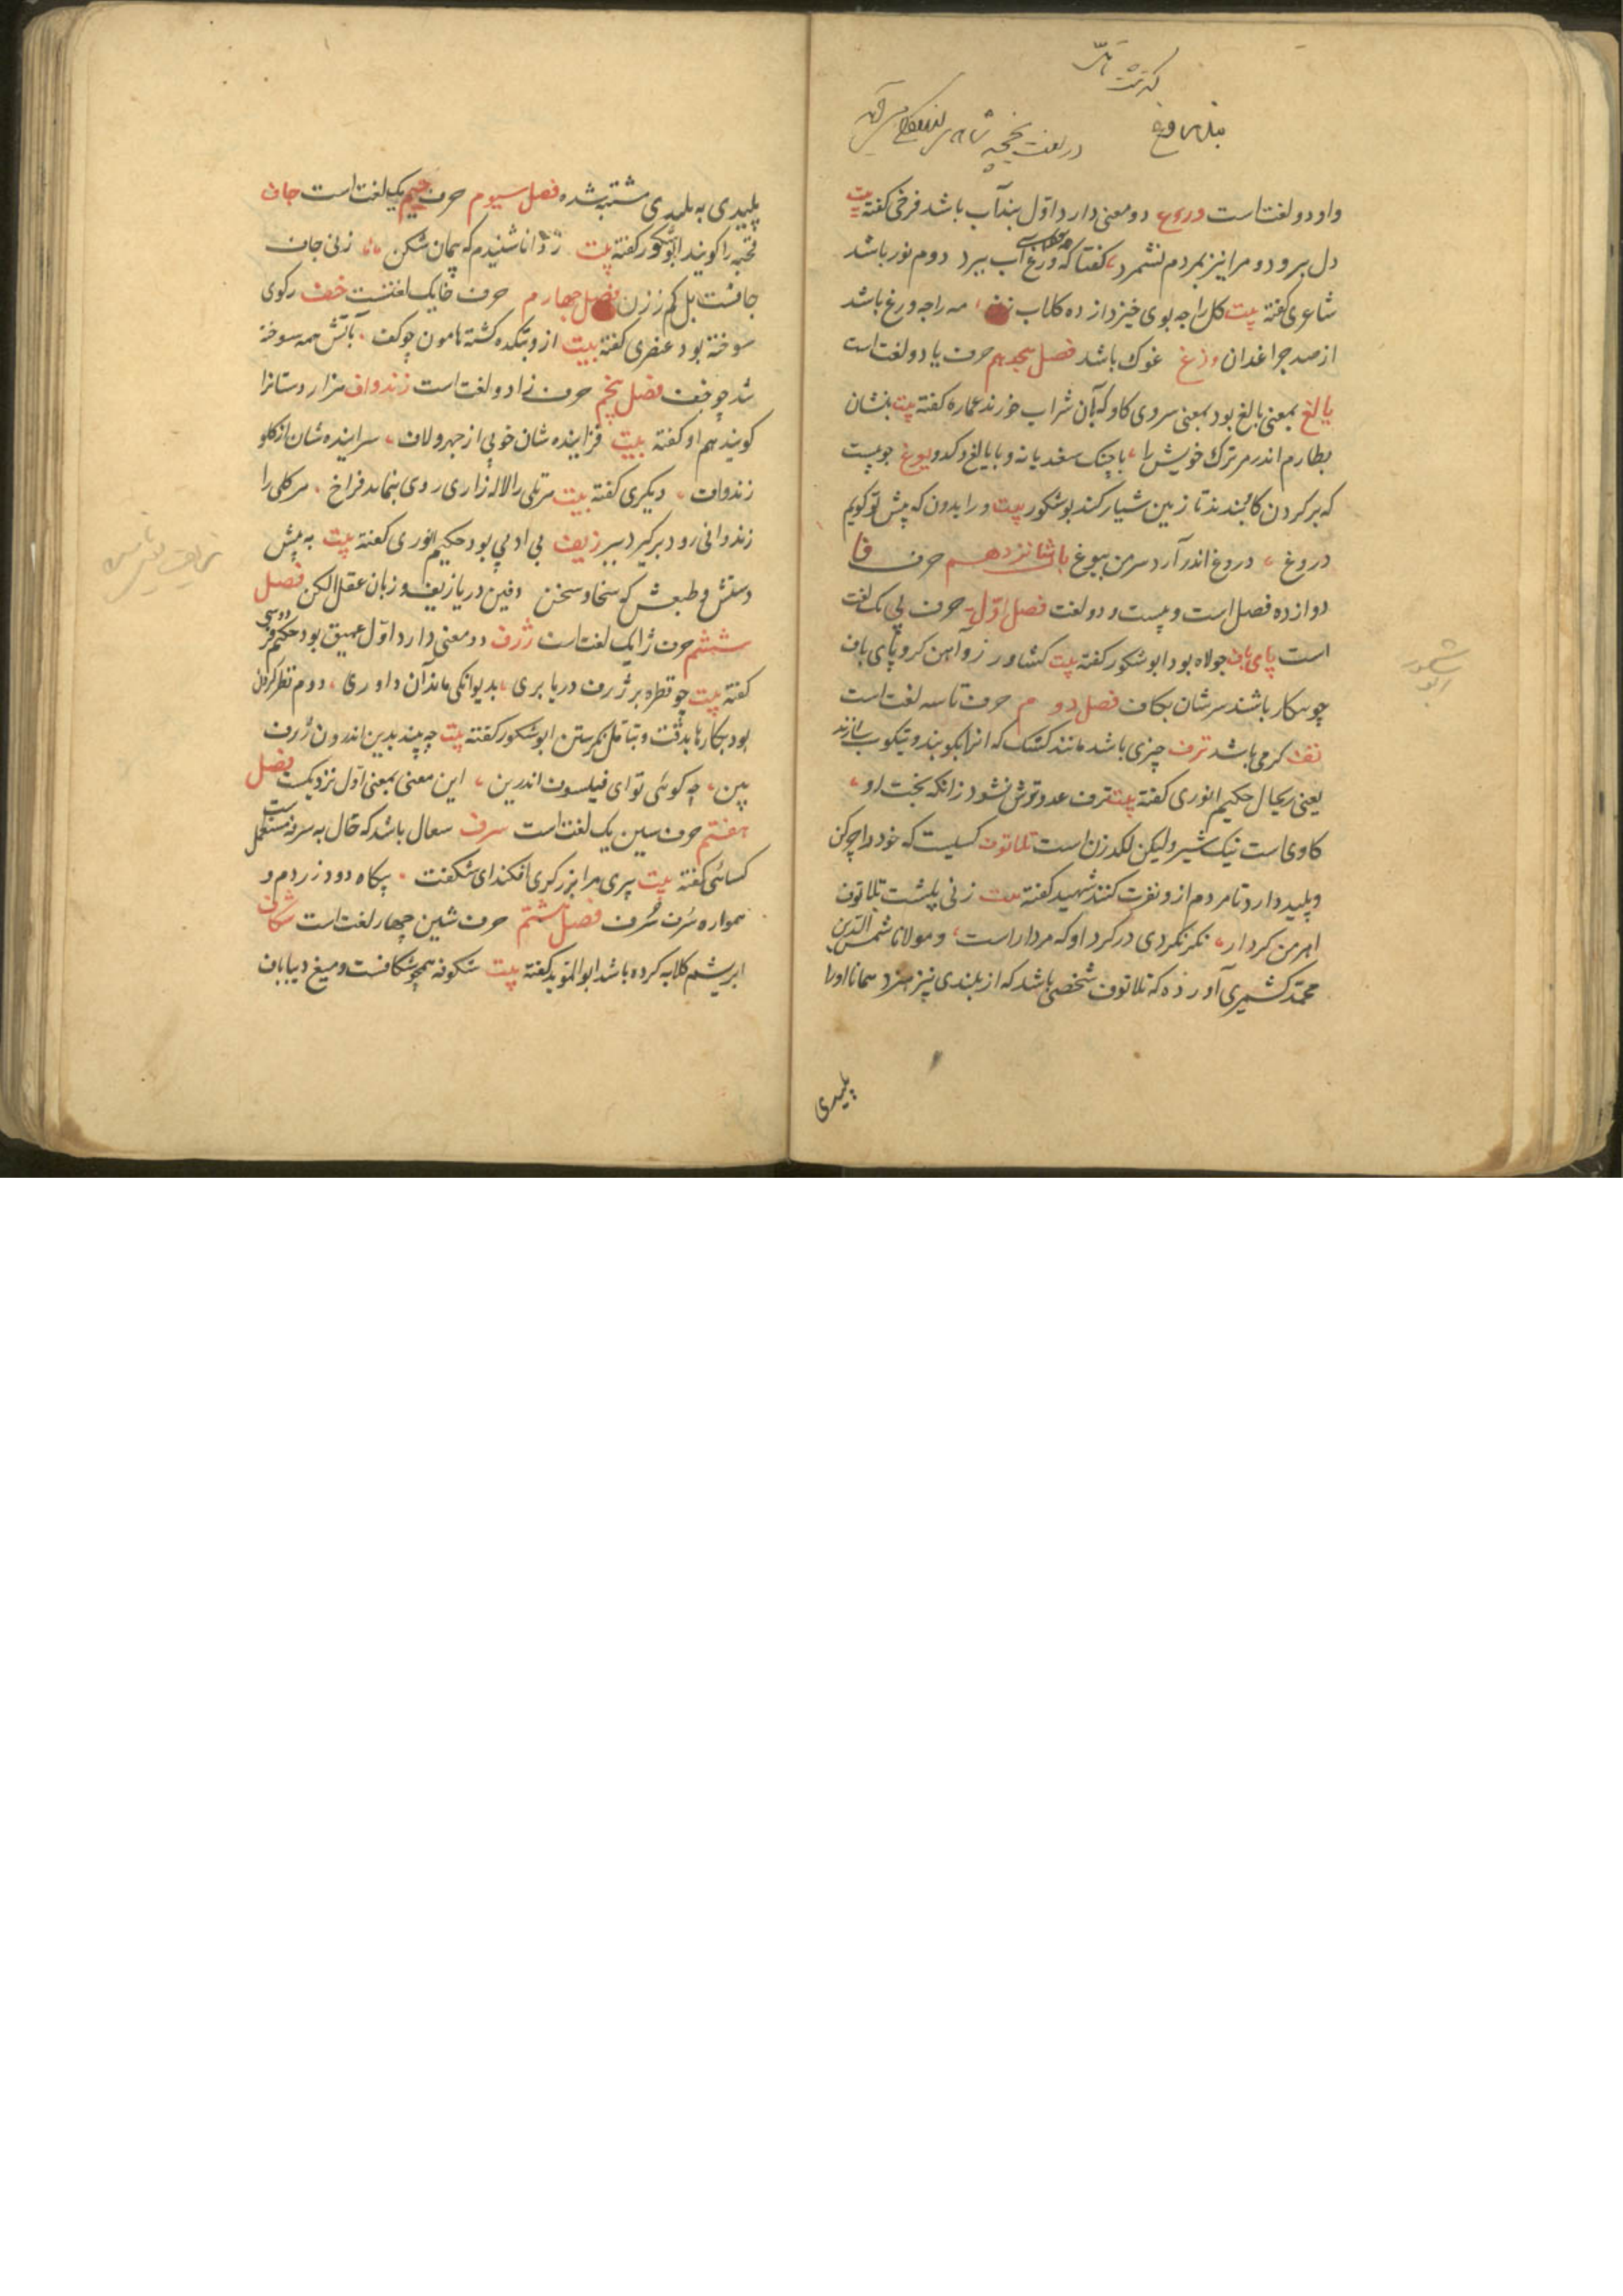 در لغت
واو دو لغت است ورغ دو معنی دارد اوّل بند آب باشد فرخی گفته بیت
دل برد و مرا نیز بمردم نشمرد گفتا که ورغ آب ببرد دوم نور باشد
شاعری گفته بیت کل را چه بوی خیزد از ده کلاب زن مه را چه ورغ باشد
از صد چراغدان وزغ غوک باشد فصل هجدهم حرف یا دو لغت است
یالغ بمعنی بالغ بود بمعنی سروی کاو که بآن شراب خورند عماره گفته بیت بنشان
بطارم اندر مر ترک خویش را با چنک سغدیانه و با یالغ و کدو یوغ چوبیست
که بر کردن کا بندند تا زمین شیار کند بوشکور بیت ورا بدون که پیش تو کویم
دروغ دروغ اندر آرد سر من بیوغ باب شانزدهم حرف فا
دوازده فصل است و بیست و دو لغت فصل اوّل حرف پی یک لغت
است پای باف جولاه بود ابو شکور گفته بیت کشاورز و آهن کر و پای باف
چو بیکار باشند سرشان بکاف فصل دوم حرف تا سه لغت است
تف کرمی باشد ترف چیزی باشد مانند کشک که انرا بکوبند و نیکوب سازند
یعنی ریحال حکیم انوری گفته بیت ترف عدو ترش نشود زانکه بخت او
کاوی است نیک شیر ولیکن لکد زن است تلاتوف کسیست که خود را چرکن
و پلید دارد تا مردم ازو نفرت کنند شهید گفته بیت زنی پلشت تلاتوف
اهرمن کردار نکر نکردی در کرد او که مردار است و مولانا شمس الدین
محمّد کشمیری آورده که تلاتوف شخصی باشد که از بلندی نیز همانا اورا
پلیدی
ابو شکور
پلیدی به بلیدی مشتبه شده فصل سیوم حرف جیم یک لغت است جاف
قحبه را کویند ابو شکور گفته بیت ز دانا شنیدم که پیمان شکن زنی جاف
جافست بل کم ز زن فصل چهارم حرف خا یک لغتست خف رکوی
سوخته بود عنصری گفته بیت ازو بتکده کشته هامون چو کف بآتش همه سوخته
شد چو خف فصل پنجم حرف زا دو لغت است زندواف هزار دستانرا
کویند هم او گفته بیت فزاینده شان خوبی از چهر و لاف سراینده شان از کلو
زندواف دیکری گفته بیت هر تلی را لاله زاری روی بنماید فراخ هر کلی را
زندوانی رود برکیرد ببر زیف بی ادبی بود حکیم انوری گفته بیت به پیش
دستش و طبعش که سخا و سخن دفین دریا زیف و زبان عقل الکن فصل
ششم حرف ژا یک لغت است ژرف دو معنی دارد اوّل عمیق بود حکیم فردوسی
گفته بیت چو قطره بر ژرف دریا بری بدیوانکی ماند آن داوری دوم نظر کردن
بود بکارها بدقّت و بتأمّل نکرستن ابو شکور گفته بیت چه بیند بدین اندرون ژرف
بین چه کوئی تو ای فیلسوف اندرین این معنی بمعنی اوّل نزدیکست فصل
هفتم حرف سین یک لغت است سرف سعال باشد که حال به سرفه مستعمل است
کسائی گفته بیت پیری مرا بزرکری افکند ای شکفت بیکاه دود زردم و
همواره سرف سرف فصل هشتم حرف شین چهار لغت است شکاف
ابریشم کلابه کرده باشد ابو المؤید گفته بیت شکوفه همچو شکافست و میغ دیباباف